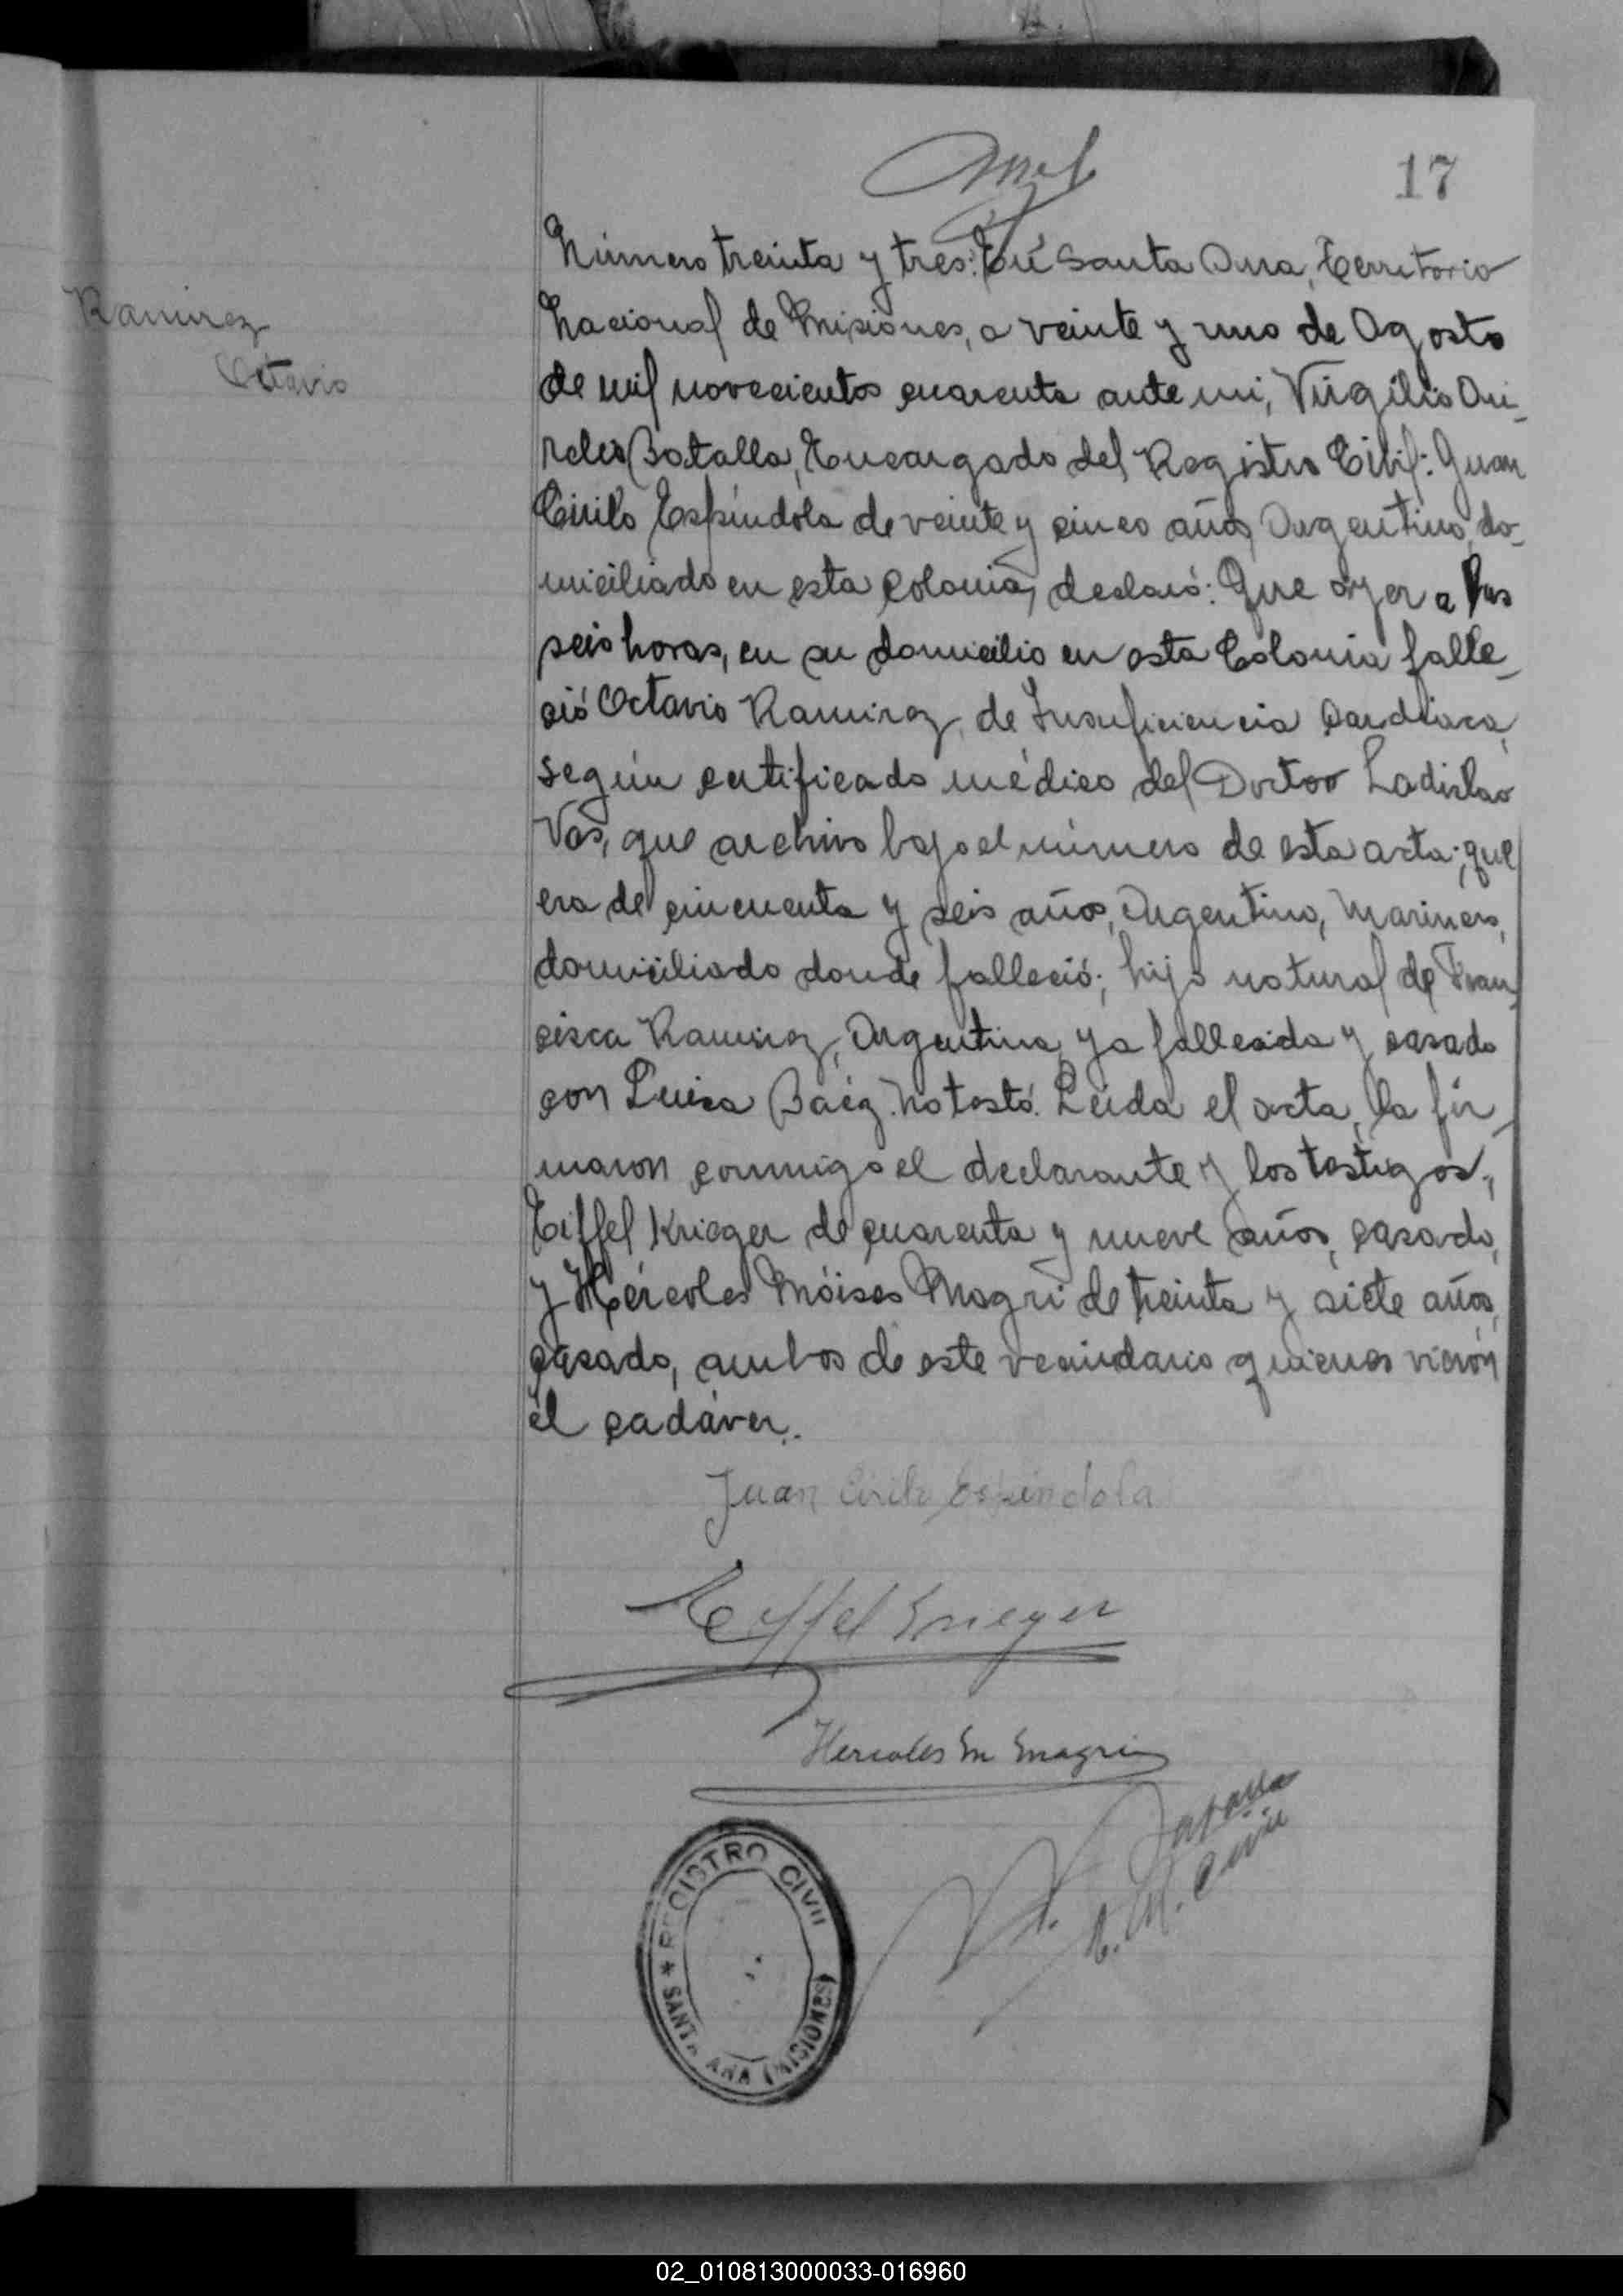 17
Número treinta y tres: En Santa Ana, Territorio
Ramirez
Octavio
Nacional de Misiones, a veinte y uno de Agosto
de mil novecientos cuarenta ante mi, Virgilio
Batalla, Encargado del Registro Civil: Juan
Cirilo Espíndola de veinte y cinco años, Argentino, do-
miciliado en esta colonia, declaró: Que ayer a las
seis horas, en su domicilio en esta Colonia falle-
ció Octavio Ramirez, de Insuficiencia Cardíaca,
según certificado médico del Doctor Ladislao
Vas, que archivo bajo el número de esta acta; que
era de cincuenta y seis años, Argentino, Marinero,
domiciliado donde falleció; hijo natural de Fran-
cisca Ramirez, Argentina, ya fallecida y casado
con Luisa Baéz. No testó. Leída el acta, la fir-
maron conmigo el declarante y los testigos,
Eiffel Krieger de cuarenta y nueve años, casado,
y Hércoles Móises Magri de treinta y siete años,
casado, ambos de este vecindario quienes vierón
el cadáver.
Juan Cirilo Espindola
Eiffel Krieger
Hercoles M Magri
REGISTRO CIVIL
* SANTA ANA (MISIONES)
02_010813000033-016960